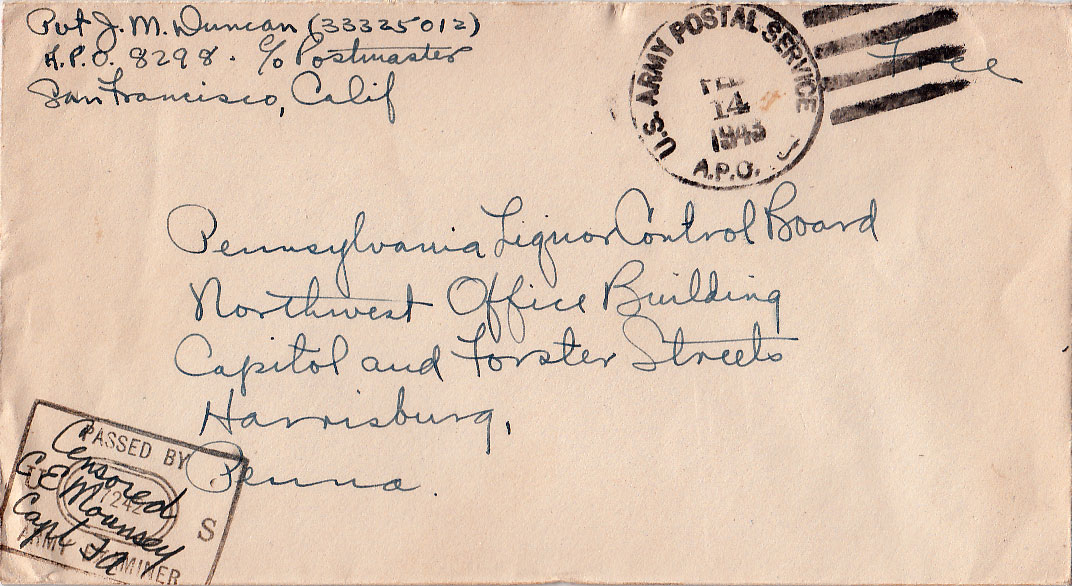 Pvt J. M. Duncan (33325012)
A.P.O. 8298. c/o Postmaster
San Francisco, Calif
U.S. ARMY POSTAL SERVICE
FEB
14
1943
A.P.O.
Free
Pennsylvania Liquor Control Board
Northwest Office Building
Capitol and Forster Streets
Harrisburg,
Penna.
PASSED BY
U S
ARMY EXAMINER
Censored
G E Mounsey
Capt FA